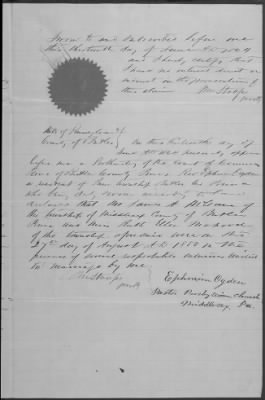 Sworn to and subscribed before me
this thirteenth day of June AD
and I hereby certify that
I have no interest direct or
indirect in the prosecution of
this claim
State of Pennsylvania
County of Butler On this thirteenth day of
June AD personally appear
before me a Prothonotary of the Court of Common
Pleas of Butler County Penna Rev. Ephraim Ogden
a resident of Penn township Butler Co. Penna
who being duly sworn according to law
declares that Mr. James A. McCune of
the township of Middlesex County of Butler
Penna and Miss Ruth Ellen
of the township aforesaid were on the
27th day of August A.D. 1880 in the
presence of several respectable witnesses united
in marriage by me
Ephraim Ogden
Pastor Presbyterian Church
Middlesex, Pa.